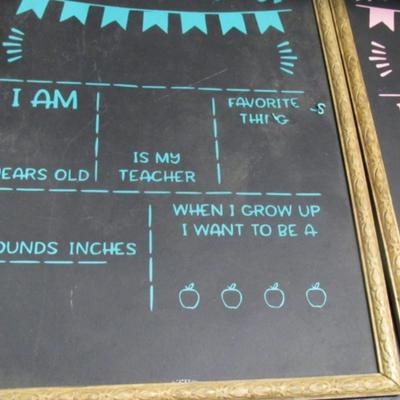 I AM
EARS OLD
IS MY
TEACHER
FAVORITE
THING
S
OUNDS INCHES
WHEN I GROW UP
I WANT TO BE A